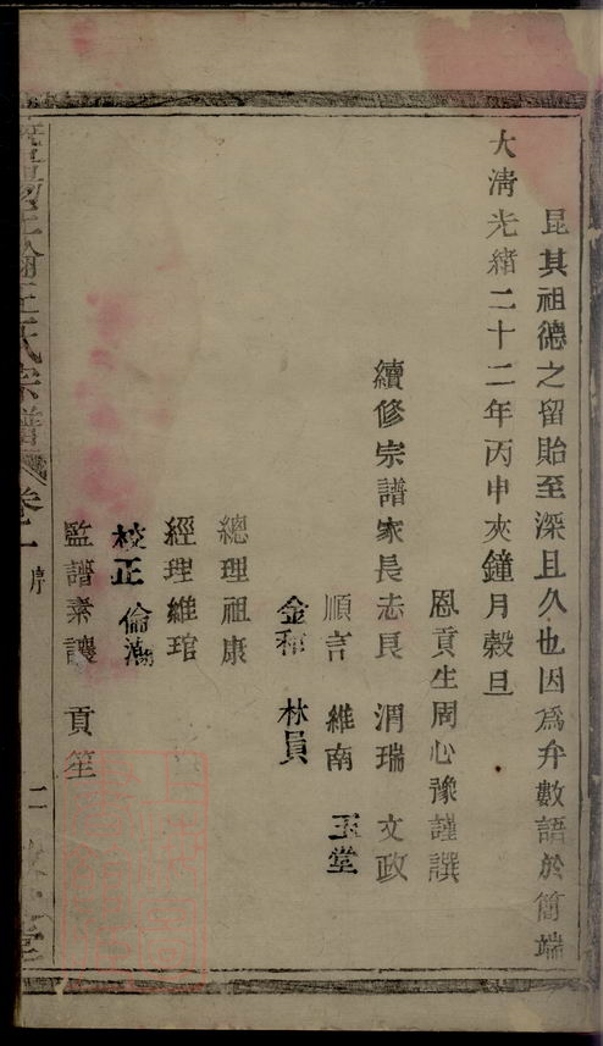 昆其祖德之留貽至深且久也因爲弁數語於簡端
大淸光緒二十二年丙申夾鐘月榖旦
恩貢生周心豫謹譔
續修宗譜家長志艮 渭瑞 文政
順言 維南 玉堂
金和 林員
總理祖康
經理維琯
校正 倫瀚
監譜素讓 貢笙
王氏宗譜 卷一 序 二